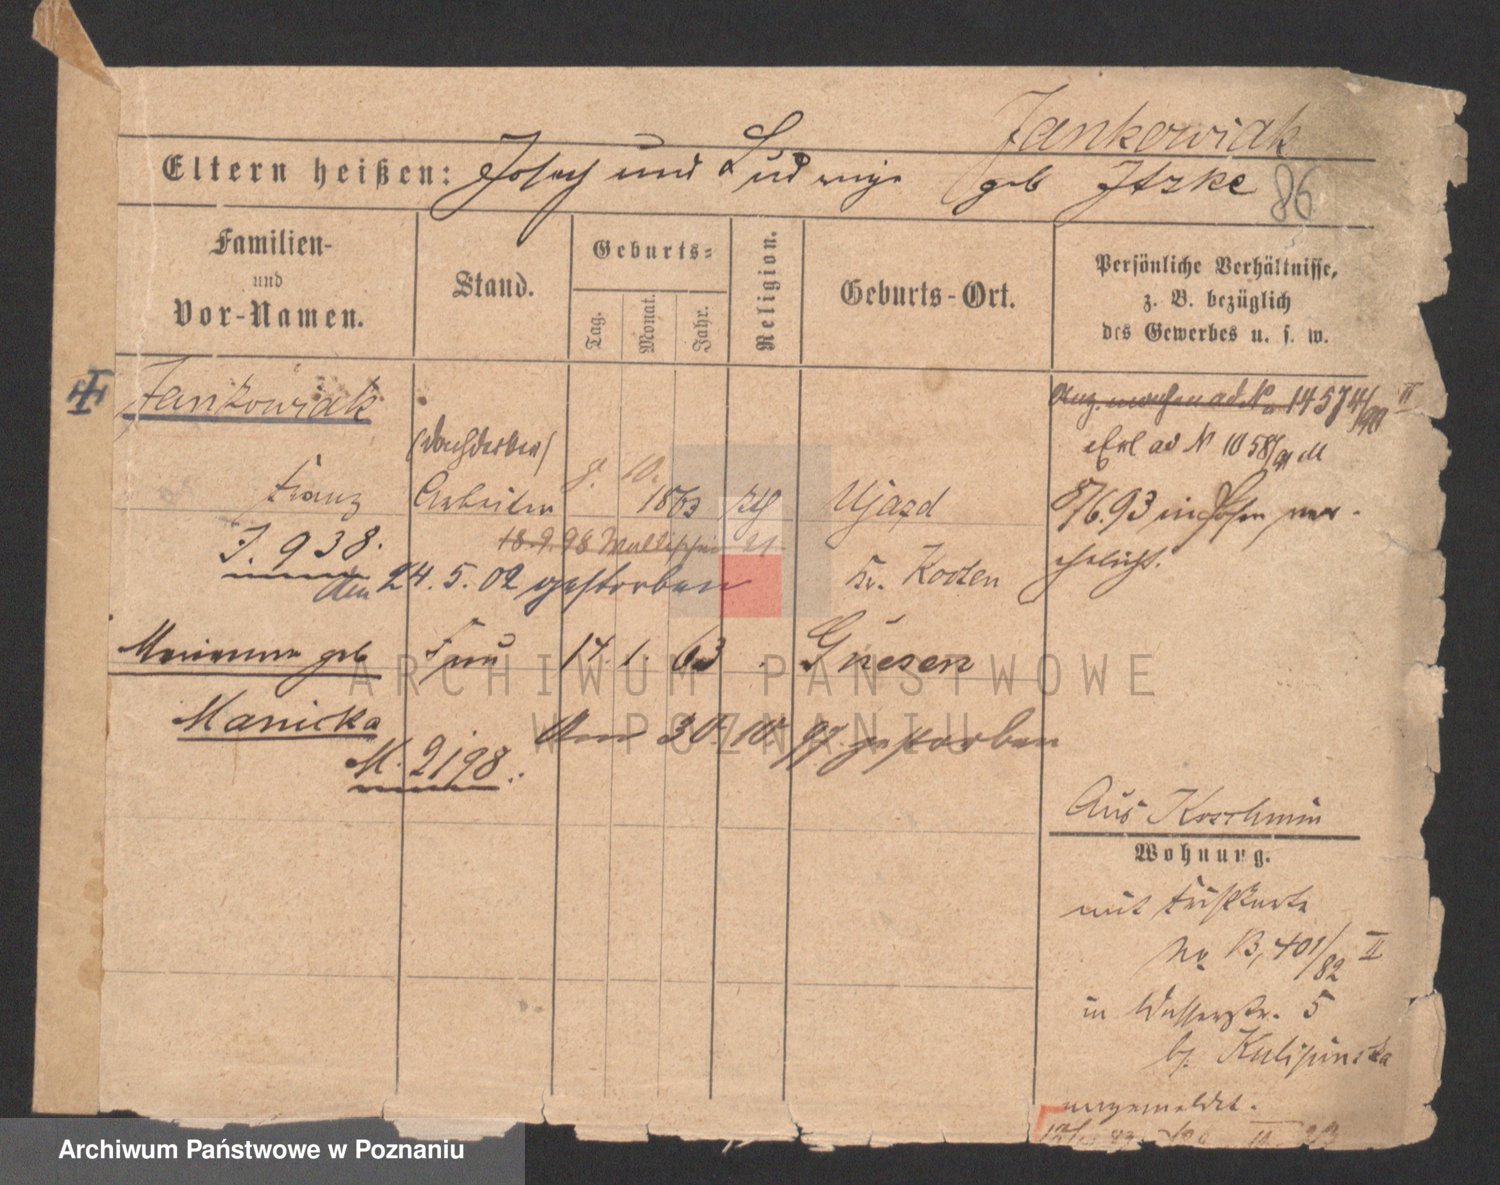 Jankowiak
Eltern heißen: Josef und Ludwiga geb Itzke 86
Familien-
und
Vor-Namen.
Stand.
Geburts-
Tag.
Monat.
Jahr.
Religion.
Geburts-Ort.
Persönliche Verhältnisse,
z. B. bezüglich
des Gewerbes u. s. w.
Jankowiak
Franz
J. 938.
Arbeiter
9. 10. 1863
Ujazd
Kr. Kosten
18.9.98
den 24.5.02 gestorben
14574/90 II
ad N 1058/91
8/6.93 in Posen ver-
ehelicht.
Marianna geb
Manicka
M. 2198.
Frau
14. 1. 63
Gnesen
30. 10. 97 gestorben
Aus Koschmin
Wohnung.
mit
No B, 401/82 II
in Wasserstr. 5
b. Kulisinska
angemeldet.
ARCHIWUM PAŃSTWOWE
W POZNANIU
Archiwum Państwowe w Poznaniu